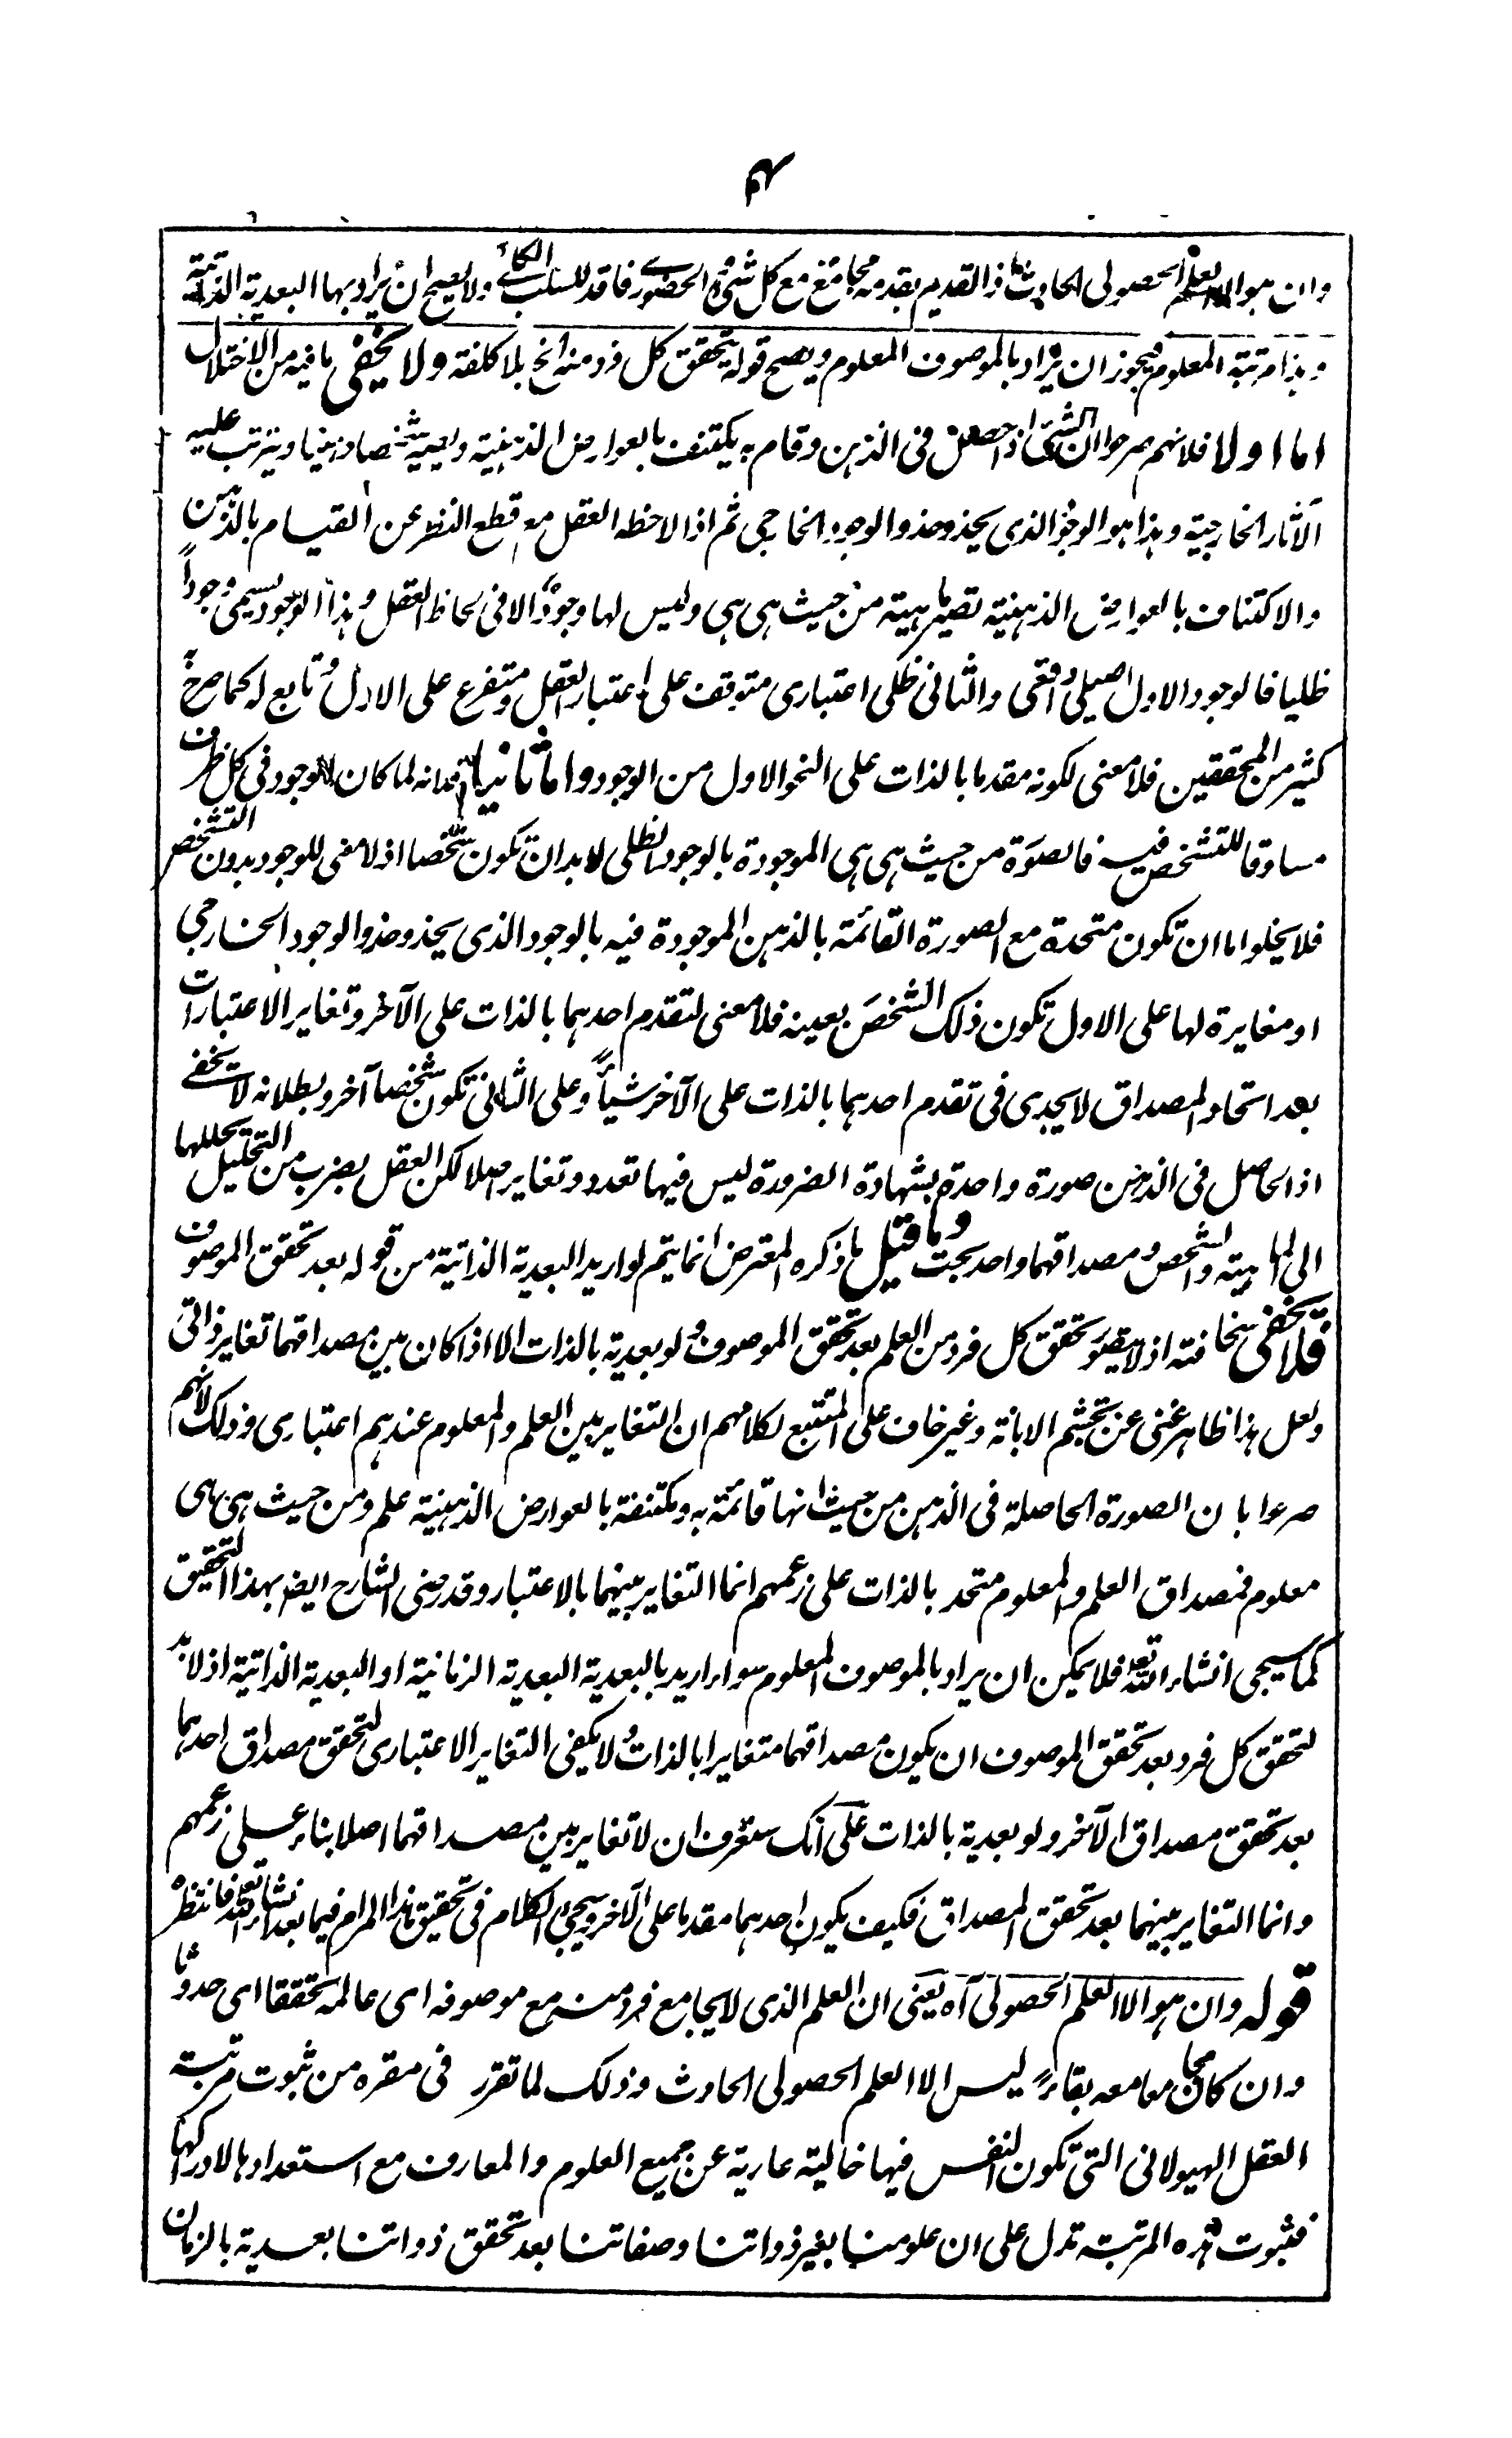 وان هو الا العلم الحصولى الحادث اذ القديم بقدمه مجامع مع كل شئ والحضورى فاقد للسلب الكلى ولا يصح ان يراد بها البعدية الذاتية
وهذا مرتبة المعلوم فيجوز ان يراد بالموصوف المعلوم ويصح قوله يتحقق كل فرد منه الخ بلا كلفة ولا يخفى ما فيه من الاختلال
اما اولا فلانهم صرحوا ان الشئ اذا حصل فى الذهن وقام به يكتنف بالعوارض الذهنية ويصير شخصا ذهنيا ويترتب عليه
الآثار الخارجية وهذا هو الوجود الذى يحذو حذو الوجود الخارجى ثم اذا لاحظه العقل مع قطع النظر عن القيام بالذهن
والاكتناف بالعوارض الذهنية تصير ماهية من حيث هى هى وليس لها وجود الا فى لحاظ العقل وهذا الوجود يسمى وجوداً
ظليا فالوجود الاول اصيلى واقعى والثانى ظلى اعتبارى متوقف على اعتبار العقل ومتفرع على الاول وتابع له كما صرح
كثير من المحققين فلا معنى لكونه مقدما بالذات على النحو الاول من الوجود واما ثانيا فلانه لما كان الوجود فى كل ظرف
مساوقا للتشخص فيه فالصورة من حيث هى هى الموجودة بالوجود الظلى لا بد ان تكون شخصا اذ لا معنى للوجود بدون التشخص
فلا يخلوا اما ان تكون متحدة مع الصورة القائمة بالذهن الموجودة فيه بالوجود الذى يحذو حذو الوجود الخارجى
او مغايرة لها على الاول تكون ذلك الشخص بعينه فلا معنى لتقدم احدهما بالذات على الآخر وتغاير الاعتبارات
بعد اتحاد المصداق لا يجدى فى تقدم احدهما بالذات على الآخر شيأً وعلى الثانى تكون شخصا آخر وبطلانه لا يخفى
اذ الحاصل فى الذهن صورة واحدة بشهادة الضرورة ليس فيها تعدد وتغاير اصلا لكن العقل بضرب من التحليل يحللها
الى الماهية والتشخص ومصداقهما واحد بحت وما قيل ما ذكره المعترض انما يتم لو اريد البعدية الذاتية من قوله بعد تحقق الموصوف
فلا يخفى سخافته اذ لا يتصور تحقق كل فرد من العلم بعد تحقق الموصوف ولو بعدية بالذات الا اذا كان بين مصداقهما تغاير ذاتى
ولعل هذا ظاهر غنى عن تجشم الابانة وغير خاف على المتتبع لكلامهم ان التغاير بين العلم والمعلوم عندهم اعتبارى وذلك لانهم
صرحوا بان الصورة الحاصلة فى الذهن من حيث انها قائمة به ومكتنفة بالعوارض الذهنية علم ومن حيث هى هى
معلوم فمصداق العلم والمعلوم متحد بالذات على زعمهم انما التغاير بينهما بالاعتبار وقد رضى الشارح ايضا بهذا التحقيق
كما سيجى انشاء الله تعه فلا يمكن ان يراد بالموصوف المعلوم سواء اريد بالبعدية البعدية الزمانية او البعدية الذاتية اذ لا بد
لتحقق كل فرد بعد تحقق الموصوف ان يكون مصداقهما متغايرا بالذات ولا يكفى التغاير الاعتبارى لتحقق مصداق احدهما
بعد تحقق مصداق الآخر ولو بعدية بالذات على انك ستعرف ان لا تغاير بين مصداقهما اصلا بناء على زعمهم
وانما التغاير بينهما بعد تحقق المصداق فكيف يكون احدهما مقدما على الآخر وسيجئ الكلام فى تحقيق هذا المرام فيما بعد انشاء الله تعه فانتظر
قوله وان هو الا العلم الحصولى آه يعنى ان العلم الذى لا يجامع فرد منه مع موصوفه اى عالمه تحققا اى حدوثا
وان كان مجامعا معه بقاءً ليس الا العلم الحصولى الحادث وذلك لما تقرر فى مقره من ثبوت مرتبة
العقل الهيولانى التى تكون النفس فيها خالية عارية عن جميع العلوم والمعارف مع استعدادها لادراكها
فثبوت هذه المرتبة تدل على ان علومنا بغير ذواتنا وصفاتنا بعد تحقق ذواتنا بعدية بالزمان